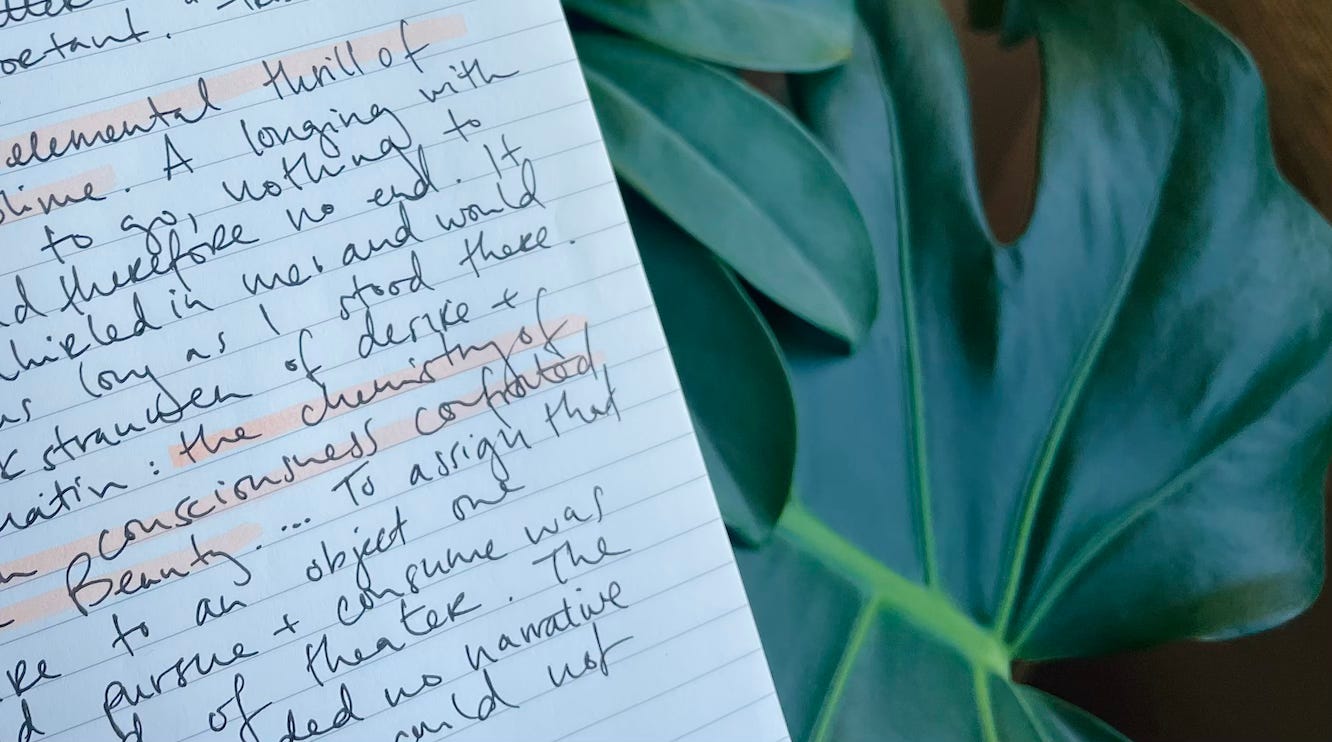 oetant.
elemental thrill of
lime. A longing with
to go, nothing to
d therefore no end. It
hirled in me, and would
as long as I stood there.
of desire +
: the chemistry of
consciousness confronted
Beauty. ... To assign that
to an object one
pursue + consume was
of theater. The
ded no narrative
could not